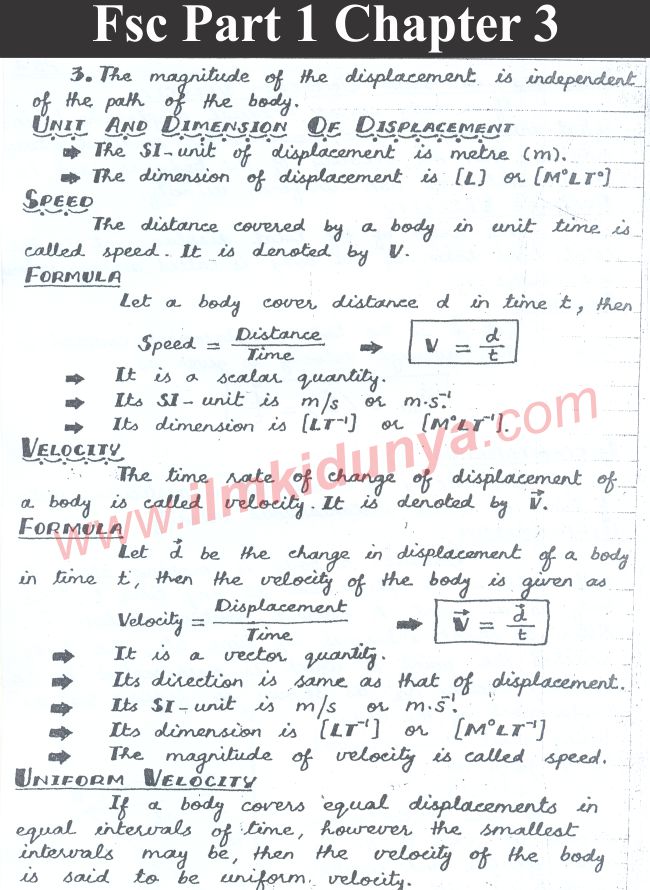 Fsc Part 1 Chapter 3
3. The magnitude of the displacement is independent
of the path of the body.
UNIT AND DIMENSION OF DISPLACEMENT
⇒ The SI-unit of displacement is metre (m).
⇒ The dimension of displacement is [L] or [M°LT°]
SPEED
The distance covered by a body in unit time is
called speed. It is denoted by V.
FORMULA
Let a body cover distance d in time t, then
Speed = Distance / Time ⇒ V = d / t
⇒ It is a scalar quantity.
⇒ Its SI-unit is m/s or m.s⁻¹.
⇒ Its dimension is [LT⁻¹] or [M°LT⁻¹].
VELOCITY
The time rate of change of displacement of
a body is called velocity. It is denoted by V⃗.
FORMULA
Let d⃗ be the change in displacement of a body
in time t, then the velocity of the body is given as
Velocity = Displacement / Time ⇒ V⃗ = d⃗ / t
⇒ It is a vector quantity.
⇒ Its direction is same as that of displacement.
⇒ Its SI-unit is m/s or m.s⁻¹.
⇒ Its dimension is [LT⁻¹] or [M°LT⁻¹]
⇒ The magnitude of velocity is called speed.
UNIFORM VELOCITY
If a body covers equal displacements in
equal intervals of time, however the smallest
intervals may be, then the velocity of the body
is said to be uniform velocity.
www.ilmkidunya.com